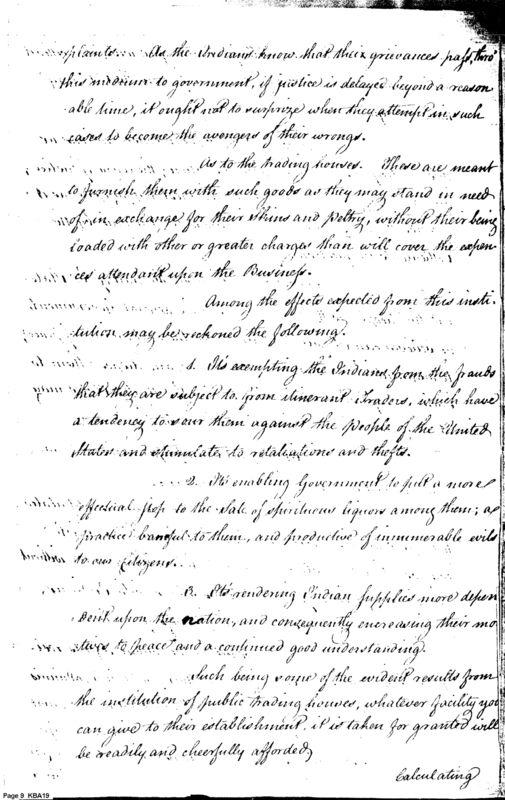 plaints. As the Indians know that their grievances pass thro'
this medium to government, if justice is delayed beyond a reason
able time, it ought not to surprize when they attempt in such
cases to become the avengers of their wrongs.
As to the trading houses. These are meant
to furnish them with such goods as they may stand in need
of in exchange for their Skins and peltry, without their being
loaded with other or greater charges than will cover the expen
ces attendant upon the Business.
Among the effects expected from this insti-
tution may be reckoned the following.
1. Its exempting the Indians from the frauds
that they are subject to from itinerant Traders, which have
a tendency to sour them against the people of the United
States and stimulate to retaliations and thefts.
2. Its enabling Government to put a more
effectual stop to the Sale of spirituous liquors among them; a
practice baneful to them, and productive of innumerable evils
to our Citizens.
3. Its rendering Indian supplies more depen
dent upon the nation, and consequently encreasing their mo
tives to peace and a continued good understanding.
Such being some of the evident results from
the institution of public trading houses, whatever facility you
can give to their establishment, it is taken for granted will
be readily and cheerfully afforded,
Calculating
Page 9 KBA19